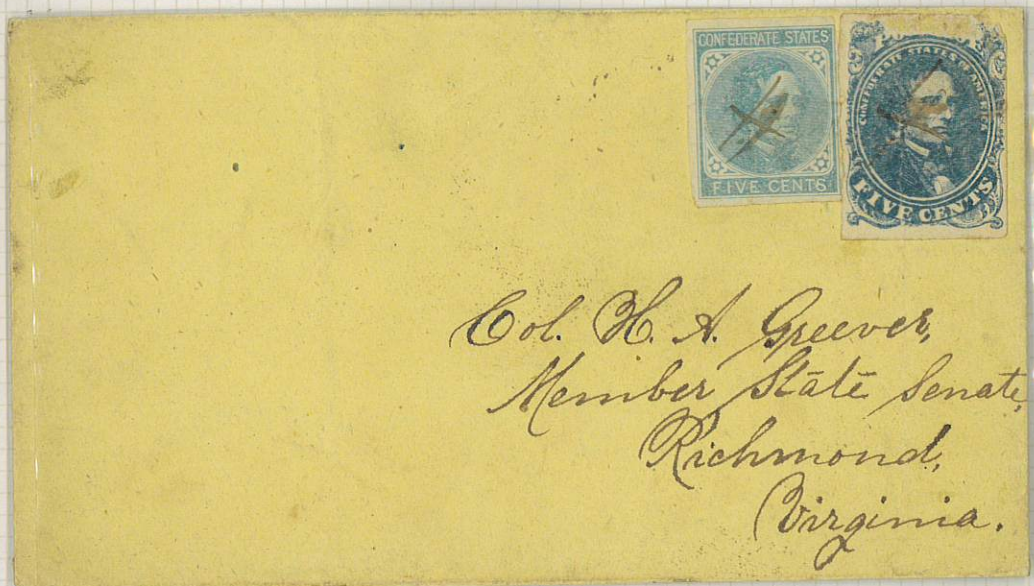 CONFEDERATE STATES
FIVE CENTS
CONFEDERATE STATES OF AMERICA
FIVE CENTS
Col. H. A. Greever,
Member State Senate,
Richmond,
Virginia.